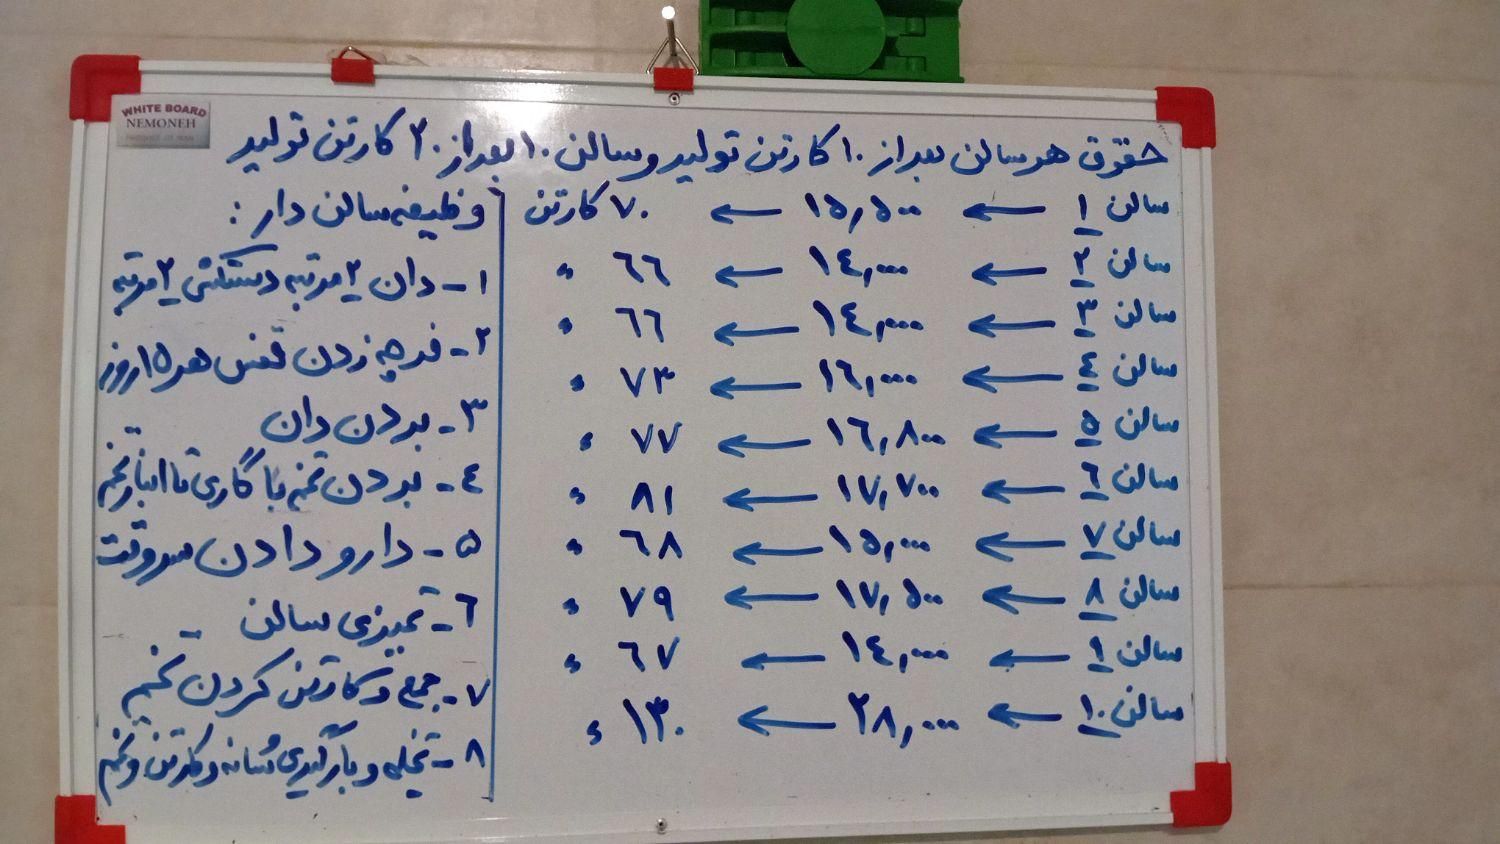 WHITE BOARD
NEMONEH
حقوق هر سالن بعد از ۱۰ کارتن تولید و سالن ۱۰ بعد از ۲۰ کارتن تولید
سالن ۱ ← ۱۵,۵۰۰ ← ۷۰ کارتن
سالن ۲ ← ۱٤,۰۰۰ ← ٦٦ ء
سالن ۳ ← ۱٤,۰۰۰ ← ٦٦ ء
سالن ٤ ← ۱٦,۰۰۰ ← ۷۳ ء
سالن ۵ ← ۱٦,۸۰۰ ← ۷۷ ء
سالن ٦ ← ۱۷,۷۰۰ ← ۸۱ ء
سالن ۷ ← ۱۵,۰۰۰ ← ٦۸ ء
سالن ۸ ← ۱۷,۵۰۰ ← ۷۹ ء
سالن ۹ ← ۱٤,۰۰۰ ← ٦۷ ء
سالن ۱۰ ← ۲۸,۰۰۰ ← ۱۳۰ ء
وظیفه سالن دار :
۱- دان ۲ مرتبه دستکش ۲ مرتبه
۲- فرچه زدن قفس هر ۱۵ روز
۳- بردن دان
٤- بردن تخم با گاری تا انبار تخم
۵- دارو دادن سروقت
٦- تمیزی سالن
۷- جمع و کارتن کردن تخم
۸- تخلیه و بارگیری شانه و کارتن و تخم